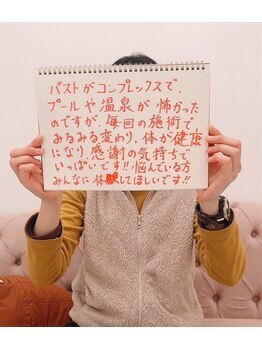 バストがコンプレックスで、
プールや温泉が怖かった
のですが、毎回の施術で
みるみる変わり、体が健康
になり、感謝の気持ちで
いっぱいです!!悩んでいる方
みんなに体験してほしいです!!